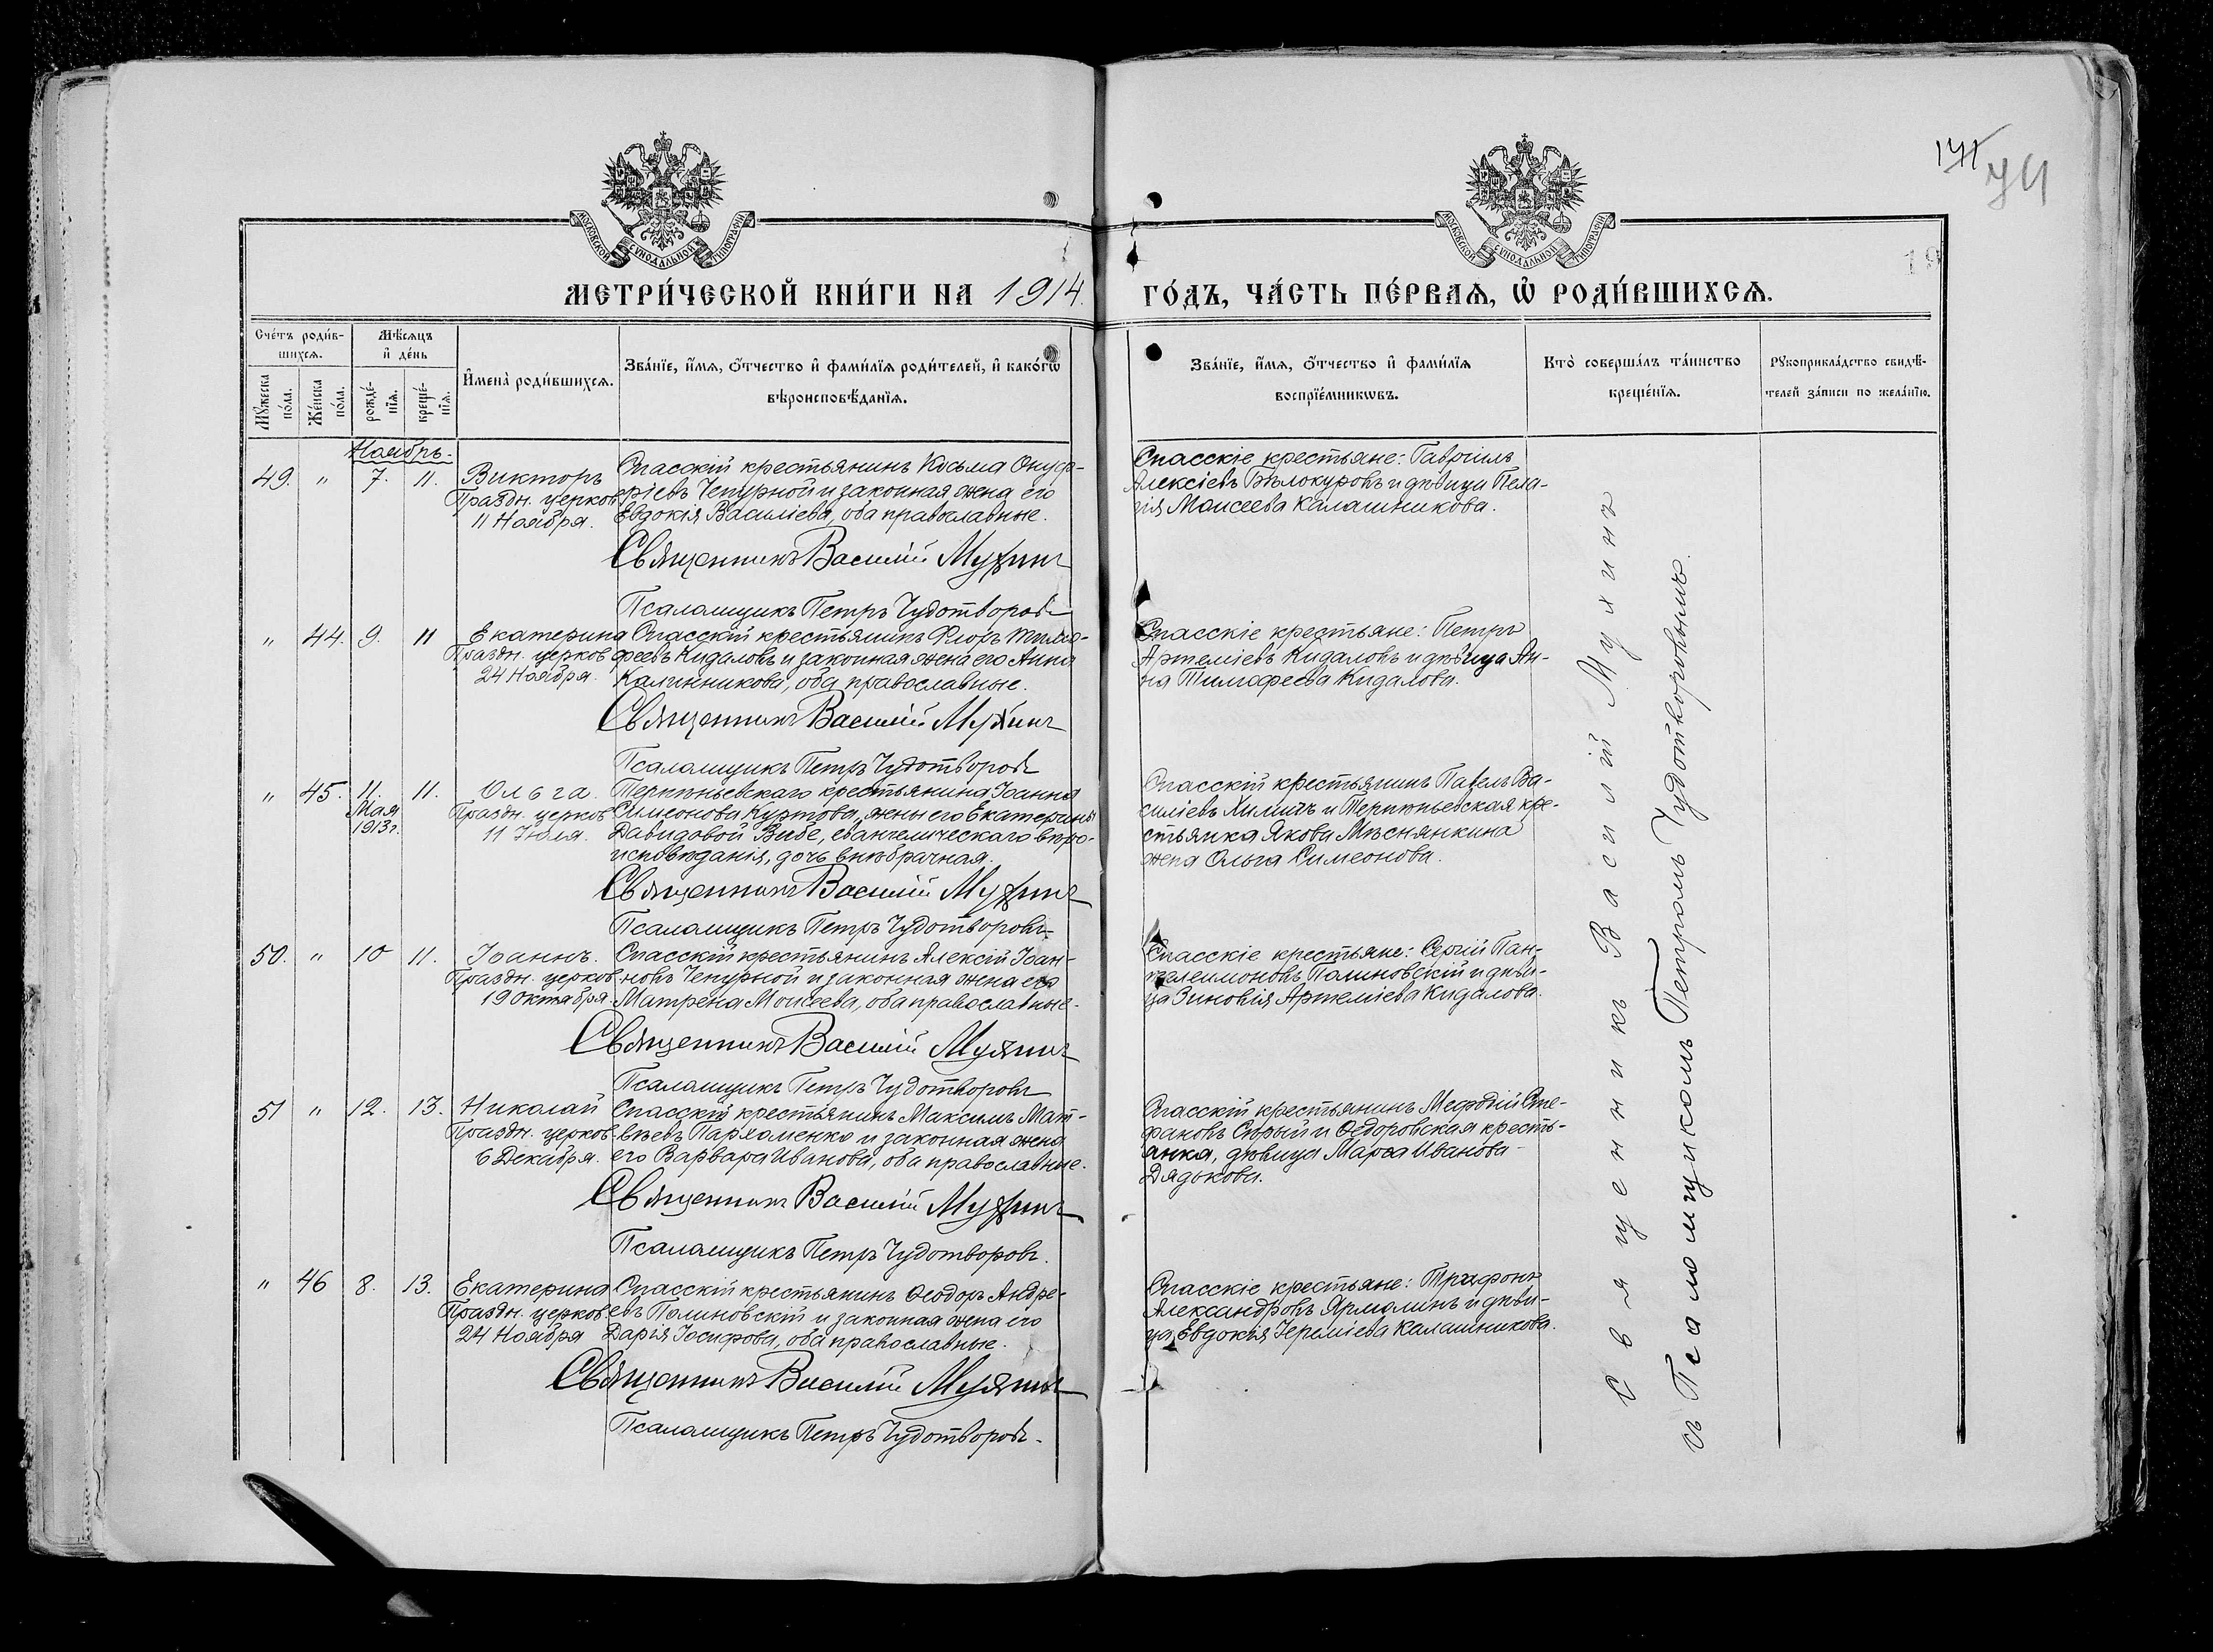 171
74
19
МОСКОВСКОЙ СѴНОДАЛЬНОЙ ТИПОГРАФІИ
МОСКОВСКОЙ СѴНОДАЛЬНОЙ ТИПОГРАФІИ
МЕТРИ́ЧЕСКОЙ КНИ́ГИ НА 1914.
ГО́ДЪ, ЧА́СТЬ ПЕ́РВАѦ, Ѡ҆ РОДИ́ВШИХСѦ.
Сче́тъ роди́в-
шихсѧ.
Мѣ́сѧцъ
и҆ де́нь
Мꙋ́жеска
по́ла.
Же́нска
по́ла.
рожде́-
нїѧ.
креще́-
нїѧ.
И҆мена̀ роди́вшихсѧ.
Зва́нїе, и҆́мѧ, ѻ҆́тчество и҆ фами́лїѧ роди́телей, и҆ како́гѡ
вѣроисповѣ́данїѧ.
Зва́нїе, и҆́мѧ, ѻ҆́тчество и҆ фами́лїѧ
воспрїе́мникѡвъ.
Кто̀ соверша́лъ та́инство
креще́нїѧ.
Рꙋкоприкла́дство свидѣ́-
телей за́писи по жела́нїю.
Ноябрь.
49. " 7. 11. Викторъ
Праздн. церков
11 Ноября.
Спасскій крестьянинъ Косьма Онуф-
ріевъ Чепурной и законная жена его
Евдокія Василіева, оба православные.
Священникъ Василій Мухинъ
Псаломщикъ Петръ Чудотворовъ
Спасскіе крестьяне: Гавріилъ
Алексіевъ Бѣлокуровъ и дѣвица Пела-
гія Моисеева Калашникова.
" 44. 9. 11 Екатерина
Праздн. церков
24 Ноября.
Спасскій крестьянинъ Флоръ Тимо-
феевъ Кидаловъ и законная жена его Анна
Калинникова, оба православные.
Священникъ Василій Мухинъ
Псаломщикъ Петръ Чудотворовъ
Спасскіе крестьяне: Петръ
Артеміевъ Кидаловъ и дѣвица Ан-
на Тимофеева Кидалова.
" 45. 11. 11. Ольга.
Мая
1913 г.
Праздн. церков
11 Іюля.
Терпѣньевскаго крестьянина Іоанна
Симеонова Куртова, жены его Екатерины
Давидовой Вибе, евангелическаго вѣро-
исповѣданія, дочь внѣбрачная.
Священникъ Василій Мухинъ
Псаломщикъ Петръ Чудотворовъ
Спасскій крестьянинъ Павелъ Ва-
силіевъ и Терпѣньевская кре-
стьянка Якова Мѣснянкина
жена Ольга Симеонова.
50. " 10 11. Іоаннъ.
Праздн. церков
19 Октября
Спасскій крестьянинъ Алексій Іоан-
новъ Чепурной и законная жена его
Матрена Моисеева, оба православные.
Священникъ Василій Мухинъ
Псаломщикъ Петръ Чудотворовъ
Спасскіе крестьяне: Сергій Пан-
телеимоновъ Полиновскій и дѣви-
ца Зиновія Артеміева Кидалова.
51 " 12. 13. Николай
Праздн. церков
6 Декабря.
Спасскій крестьянинъ Максимъ Мат-
вѣевъ Пархоменко и законная жена
его Варвара Иванова, оба православные.
Священникъ Василій Мухинъ
Псаломщикъ Петръ Чудотворовъ.
Спасскій крестьянинъ Мефодій Сте-
фановъ Сѣрый и Ѳедоровская кресть-
янка, дѣвица Марѳа Иванова
Дядькова.
" 46 8. 13. Екатерина
Праздн. церков.
24 Ноября
Спасскій крестьянинъ Ѳеодоръ Андре-
евъ Полиновскій и законная жена его
Дарія Іосифова, оба православные.
Священникъ Василій Мухинъ
Псаломщикъ Петръ Чудотворовъ.
Спасскіе крестьяне: Трифонъ
Александровъ Ярмолинъ и дѣви-
ца Евдокія Іереміева Калашникова.
Священникъ Василій Мухинъ
съ Псаломщикомъ Петромъ Чудотворовымъ.